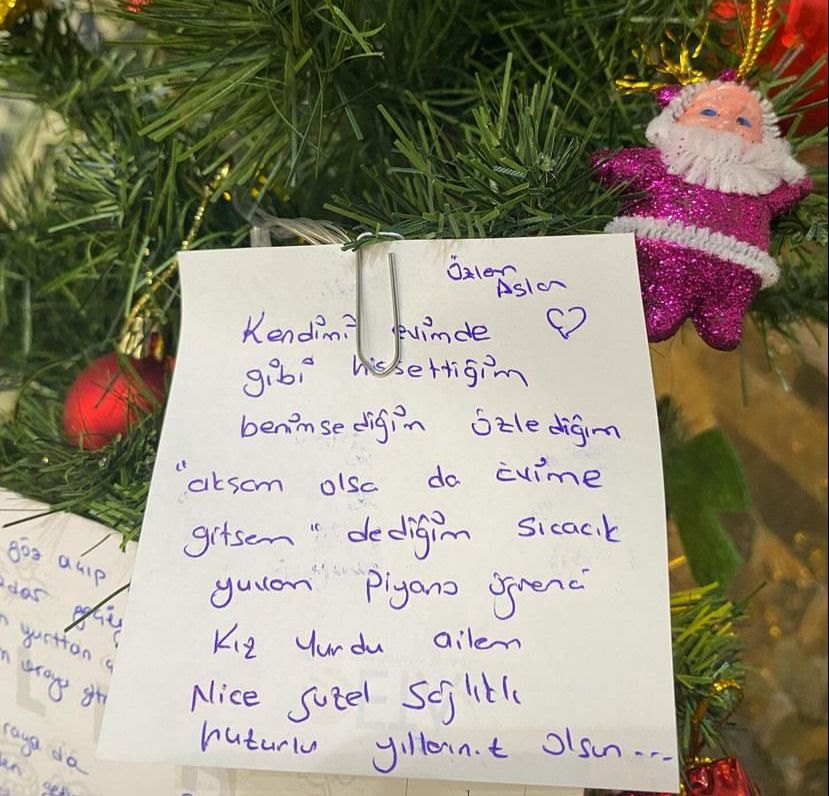 Özlem
Aslan
Kendimi evimde
gibi hissettiğim
benimsediğim özlediğim
"akşam olsa da evime
gitsem" dediğim sıcacık
yuvam Piyano öğrenci
Kız Yurdu ailem
Nice güzel sağlıklı
huzurlu yıllarımız olsun...
göz açıp
yurttan
raya da